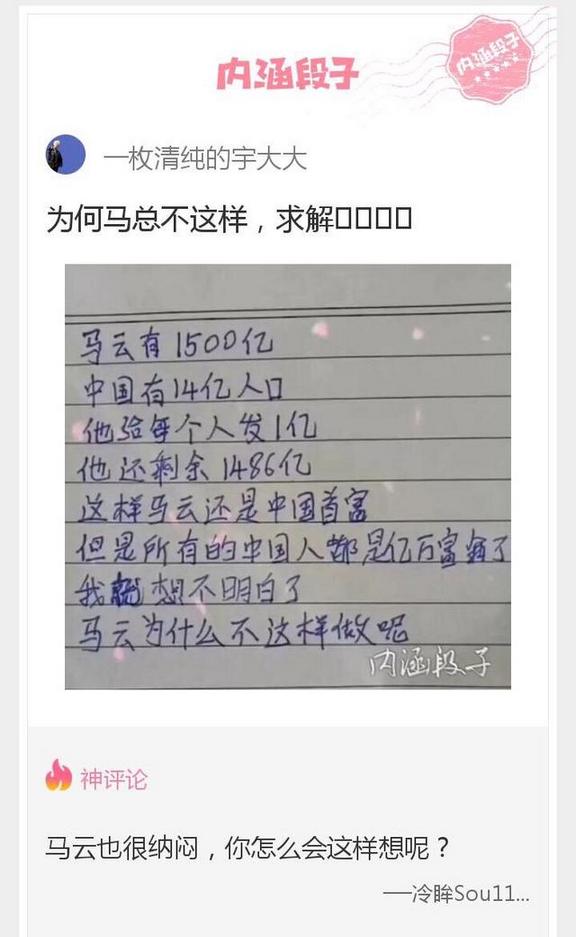 内涵段子
内涵段子
一枚清纯的宇大大
为何马总不这样，求解
马云有1500亿
中国有14亿人口
他给每个人发1亿
他还剩余1486亿
这样马云还是中国首富
但是所有的中国人都是亿万富翁了
我就想不明白了
马云为什么不这样做呢
内涵段子
神评论
马云也很纳闷，你怎么会这样想呢？
──冷眸Sou11...